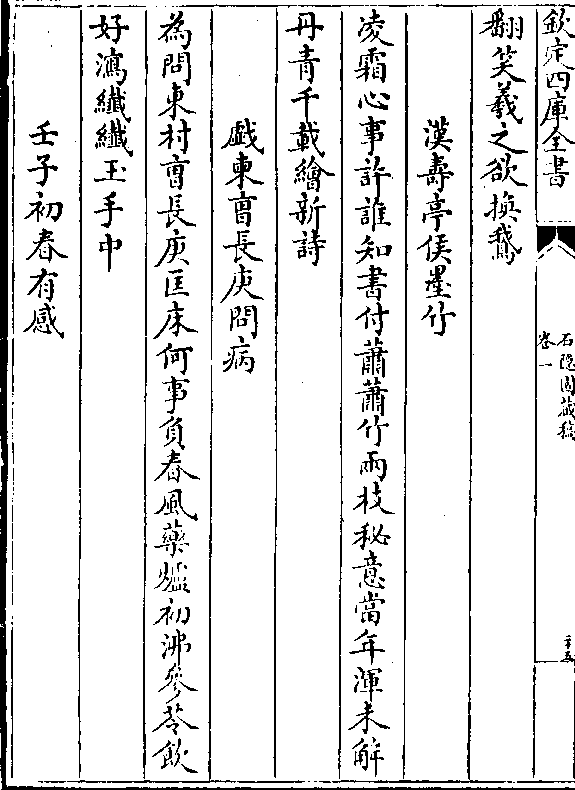 欽定四庫全書
石隠園藏稿
卷一
翻笑羲之欲換鵝
漢壽亭侯墨竹
凌霜心事許誰知書付蕭蕭竹兩枝秘意當年渾未解
丹青千載繪新詩
戯柬曺長庚問病
為問東村曺長庚匡床何事負春風藥爐初沸參苓飲
好瀉纖纖玉手中
壬子初春有感